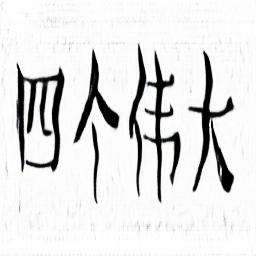 四个伟大